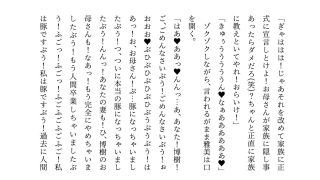 「ぎゃはは!じゃあそれを改めて家族に正
式に宣言しとけよ!お母さんが家族に隠し事
あったらダメだろ(笑)っちゃんと正直に家族
に教えといてやれ!おらいけ!」
「きゅうううううん♥なぁあああああああ♥」
ゾクゾクしながら、言われるがまま雅美は口
を開く。
「はぁ♥ああっ♥んんっ、あ、あなた!博樹!
ご、ごめんなさいぶう!ごめんなさいぶうぅ!お
おおお♥ぶひぶひぶひぶうぶうぶう!は
あっ!お、お母さん!ぶ、豚になっちゃいまし
たぶう!つ、ついに本当の豚になっちゃいまし
たぶう!んんっ!あなたの妻も!ひ、博樹のお
母さんも!なあっ!もう完全にやめちゃいま
したぶう!もう人間卒業しちゃいましたぶ
う!ふごっ!ふごっ!ふごふごふごふご!私
は豚ですぶう!私は豚ですぶう!過去に人間